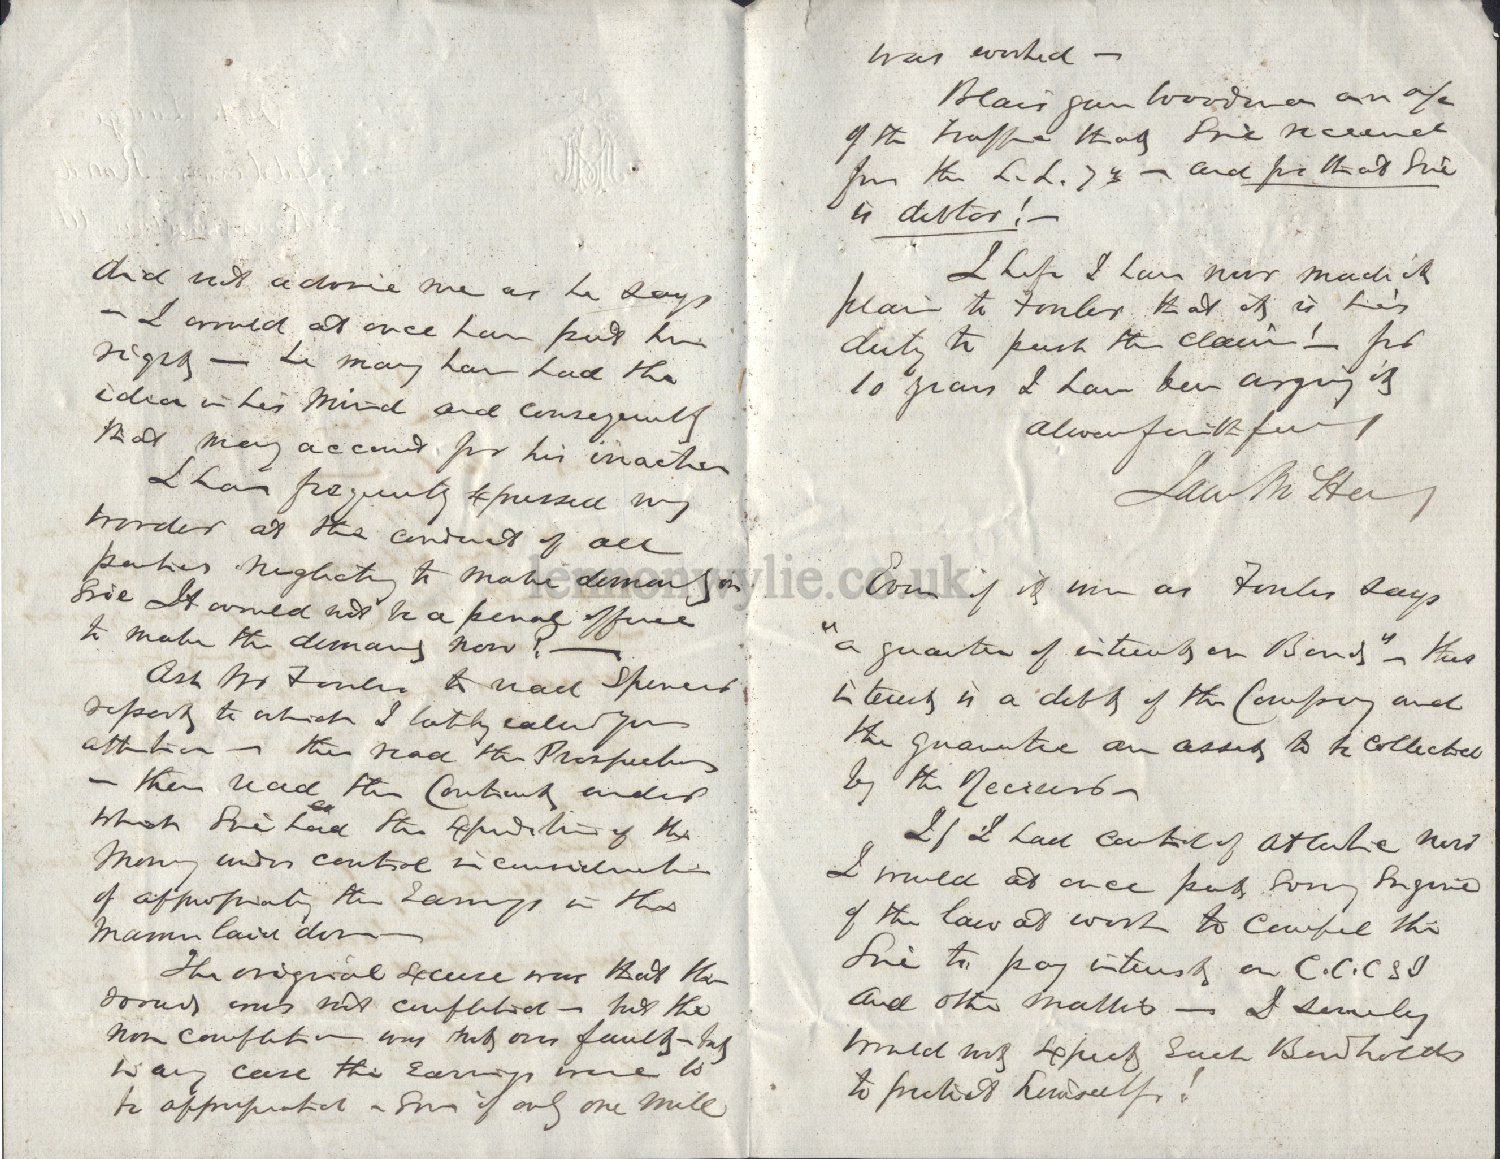 did not advise me as he says
– I would at once have put him
right – he may have had the
idea in his mind and consequently
that may account for his inaction
I have frequently expressed my
wonder at the conduct of all
parties neglecting to make demand on
Erie It would not be a penal offence
to make the demand now? –
Ask Mr Fowler to read Spencer's
report to which I lately called your
attention – then read the Prospectus
– then read the Contract under
which Erie had the expenditure of the
Money under control in consideration
of appropriating the Earnings in the
manner laid down
The original excuse was that the
road was not completed – but the
non completion was not our fault – but
in any case the Earnings were to
be appropriated – even if only one Mile
was worked –
Blair gave Woodman an a/c
of the traffic that Erie received
from the L.L. – and for that Erie
is debtor! –
I hope I have now made it
plain to Fowler that it is his
duty to push the claim! – for
10 years I have been urging it
always faithfully
Jas McHenry
lemonwylie.co.uk
Even if it were as Fowler says
"a guarantee of interest on Bonds" – this
interest is a debt of the Company and
the guarantee an asset to be collected
by the Receiver –
If I had control of Atlantic now
I would at once put every Engine
of the law at work to compel the
Erie to pay interest on C.C.C & I
and other matters – I surely
would not expect each Bondholder
to protect himself!